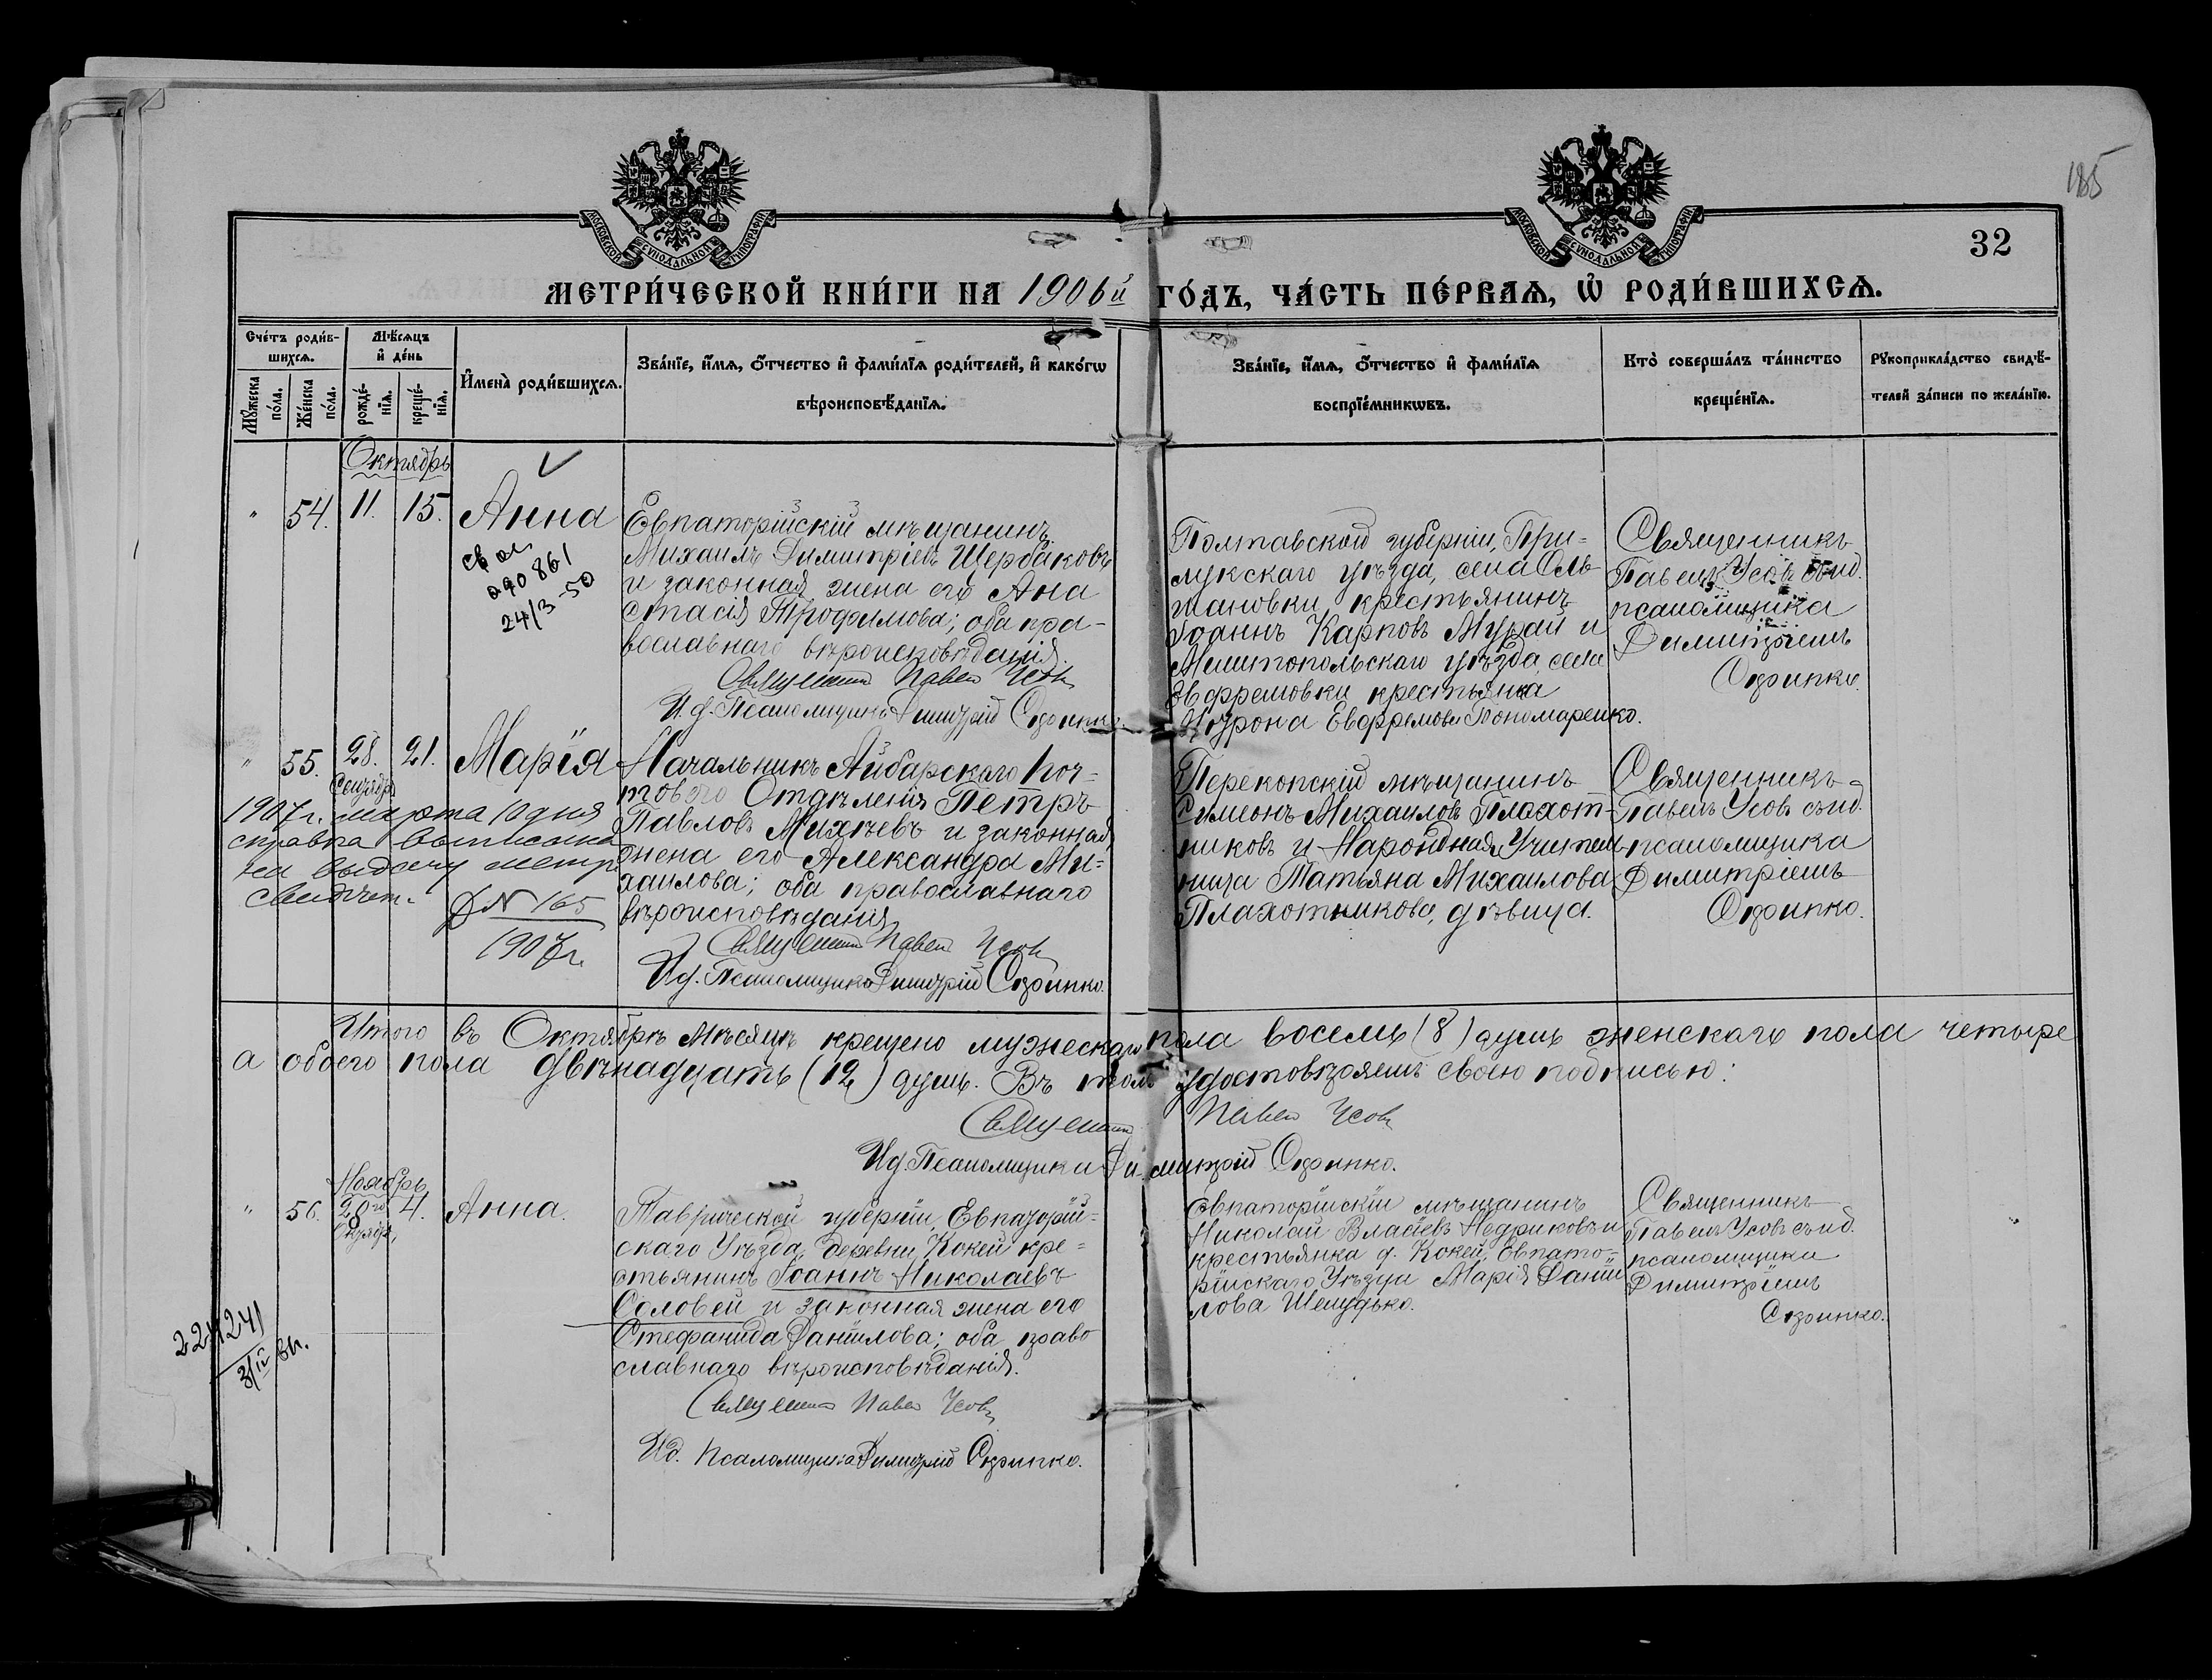 185
МОСКОВСКОЙ СѴНОДАЛЬНОЙ ТИПОГРАФІИ
МОСКОВСКОЙ СѴНОДАЛЬНОЙ ТИПОГРАФІИ
32
МЕТРИ́ЧЕСКОЙ КНИ́ГИ НА 1906й ГО́ДЪ, ЧА́СТЬ ПЕ́РВАѦ, Ѡ҆ РОДИ́ВШИХСѦ.
Сче́тъ роди́в-
шихсѧ.
Мꙋ́жеска по́ла.
Же́нска по́ла.
Мѣ́сѧцъ
и҆ де́нь
рожде́-
нїѧ.
креще́-
нїѧ.
И҆мена̀ роди́вшихсѧ.
Зва́нїе, и҆́мѧ, о҆́тчество и҆ фами́лїѧ роди́телей, и҆ како́гѡ
вѣроисповѣ́данїѧ.
Зва́нїе, и҆́мѧ, о҆́тчество и҆ фами́лїѧ
воспрїе́мникѡвъ.
Кто̀ соверша́лъ та́инство
креще́нїѧ.
Рꙋкоприкла́дство свидѣ́-
телей за́писи по жела́нїю.
Октябрь
" 54. 11. 15. Анна
290861
24/3-50
Евпаторійскій мѣщанинъ
Михаилъ Димитріевъ Щербаковъ
и законная жена его Ана
стасія Трофимова; оба пра-
вославнаго вѣроисповѣданія.
Священникъ Павелъ Усовъ
И.д. Псаломщика Димитрій
Полтавской губерніи, При-
лукскаго уѣзда, села Оль-
шановки крестьянинъ
Іоаннъ Карповъ Мурай и
Мелитопольскаго уѣзда села
Ефремовки крестьянка
Евфремова Пономаренко.
Священникъ
Павелъ Усовъ съ и.д.
псаломщика
Димитріемъ
" 55. 28. 21. Марія
Сентября
1907г. марта 10 дня
справка выписана
на выдачу метр.
свидѣт.
№ 165
1907г.
Начальникъ Айбарскаго Поч-
товаго Отдѣленія Петръ
Павловъ Михѣевъ и законная
жена его Александра Ми-
хаилова; оба православнаго
вѣроисповѣданія.
Священникъ Павелъ Усовъ
И.д. Псаломщика Димитрій
Перекопскій мѣщанинъ
Симеонъ Михаиловъ Плахот-
никовъ и Народная Учитель-
ница Татьяна Михаилова
Плахотникова, дѣвица.
Священникъ
Павелъ Усовъ съ и.д.
псаломщика
Димитріемъ
Итого въ Октябрѣ мѣсяцѣ крещено мужескаго пола восемь (8) душъ женскаго пола четыре
а обоего пола двѣнадцать (12) душъ. Въ томъ удостовѣряемъ своею подписью:
Священникъ Павелъ Усовъ
И.д. Псаломщика Димитрій
Ноябрь
" 56. 20го 4. Анна.
Октября
Таврической губерніи, Евпаторій-
скаго Уѣзда, деревни Кокей кре-
стьянинъ Іоаннъ Николаевъ
Соловей и законная жена его
Стефанида Даніилова; оба право
славнаго вѣроисповѣданія.
Священникъ Павелъ Усовъ
И.д. Псаломщика Димитрій
Евпаторійскій мѣщанинъ
Николай Власіевъ Недриковъ и
крестьянка д. Кокей, Евпато-
рійскаго Уѣзда Марія Даніи
лова Шелудько.
Священникъ
Павелъ Усовъ съ и.д.
псаломщика
Димитріемъ